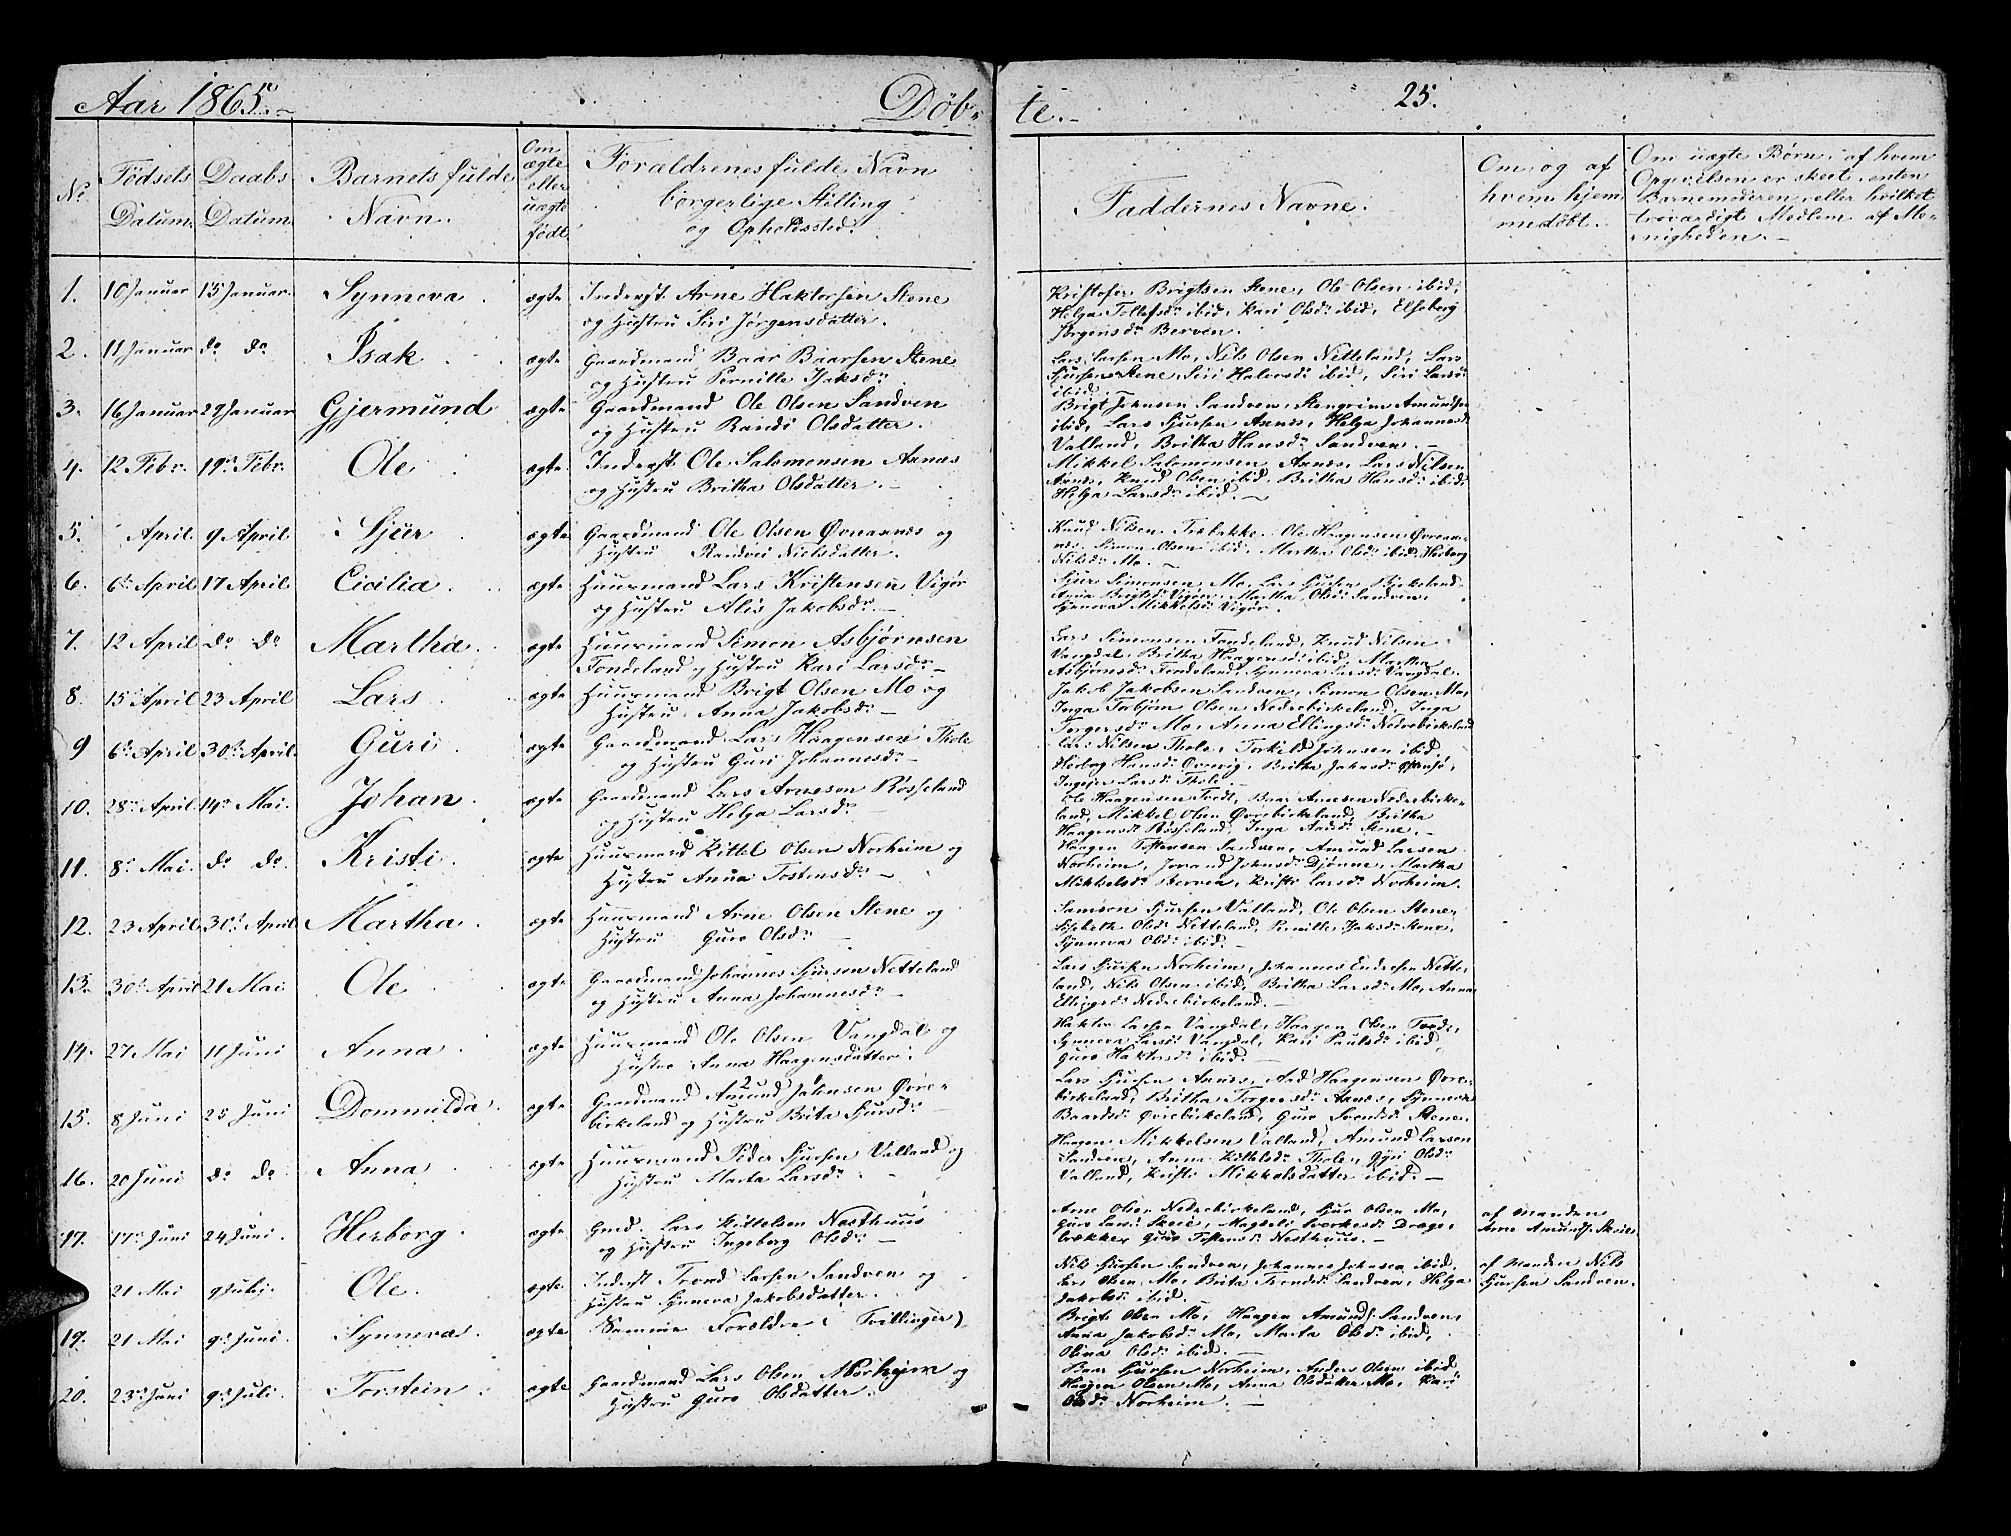 Aar 1865.
Døb-
te.
25.
No
Fødsels Datum.
Daabs Datum
Barnets fulde Navn.
Om ægte eller uægte født
Forældrenes fulde Navn
borgerlige Stilling
og Opholdssted.
Faddernes Navne.
Om og af
hvem hjem
medøbt.
Om uægte Børn, af hvem
Opgivelsen er skeet, enten
Barnemoderen, eller hvilket
troværdigt Medlem af Me-
nigheden.
1. 10 Januar 15 Januar. Synneva ægte Inderst Arne Haktorsen Stene
og Hustru Siri Jørgensdatter.
Kristofer Brigtsen Stene, Ole Olsen ibid,
Helga Tollefsdr ibid, Kari Olsdr ibid, Elseborg
Jørgensdr Berven.
2. 11 Januar do do Isak ægte Gaardmand Baar Baarsen Stene
og Hustru Pernille Isaksdr
Lars Larsen Mo, Nils Olsen Netteland, Lars
Sjursen Stene, Siri Halvorsdr ibid, Siri Larsdr
ibid.
3. 16 Januar 29 Januar Gjermund ægte Gaardmand Ole Olsen Sandven
og Hustru Randi Olsdatter.
Brigt Johnsen Sandven, Stengrim Amundsen
ibid, Lars Sjursen Axnes, Helga Johannesdr
Valland, Britha Hansdr Sandven.
4. 12 Febr. 19 Febr. Ole ægte Inderst Ole Salomonsen Axnes
og Hustru Britha Olsdatter.
Mikkel Salomonsen Axnes, Lars Nilsen
Axnes, Knud Olsen ibid, Britha Hansdr ibid,
Helga Larsdr ibid.
5. April. 9 April. Sjur ægte Gaardmand Ole Olsen Øvreaxnes og
Hustru Randvei Nielsdatter.
Knud Nilsen Træbakke, Ole Haagensen Øvreax-
nes, Simon Olsen ibid, Martha Olsdr ibid, Herborg
Nilsdr Mo.
6. 6 April 17 April. Cicilia ægte Huusmand Lars Kristensen Vigør
og Hustru Alis Jakobsdr
Sjur Simonsen Mo, Lars Sjursen Birkeland,
Anna Brigtsdr Vigør, Martha Olsdr Sandven,
Synneva Mikkelsdr Vigør.
7. 12 April do do Martha ægte Huusmand Simon Asbjørnsen
Tondeland og Hustru Kari Larsdr
Lars Simonsen Tondeland, Knud Nilsen
Vangdal, Britha Haagensdr ibid, Martha
Asbjørnsdr Tondeland, Synneva Larsdr Vangdal.
8. 15 April 23 April Lars ægte Huusmand Brigt Olsen Mo og
Hustru Anna Jakobsdr
Jakob Jakobsen Sandven, Simon Olsen Mo,
Inga Torbjørn Olsen Nedrebirkeland, Inga
Torgersdr Mo, Anna Ellingsdr Nedrebirkeland
9 6 April 30 April. Guri ægte Gaardmand Lars Haagensen Thole
og Hustru Guri Johannesdr
Lars Nilsen Thole, Torkild Johnsen ibid,
Herborg Hansdr, Britha Johnsdr,
Ingebor Larsdr Thole
10. 28 April 14 Mai. Johan ægte Gaardmand Lars Arneson Røsseland
og Hustru Helga Larsdr
Ole Haagensen Tvedt, Baar Arnesen Nedrebirke-
land, Mikkel Olsen Øvrebirkeland, Britha
Haagensdr Røsseland, Inga Aadsdr Stene.
11. 8 Mai. do do Kristi ægte Huusmand Kittel Olsen Norheim og
Hustru Anna Tostensdr
Haagen Tostensen Sandven, Amund Larsen
Norheim, Jorand Johnsdr Djønne, Martha
Mikkelsdr Berven, Kristi Larsdr Norheim.
12. 23 April 30 April Martha ægte Huusmand Arne Olsen Stene og
Hustru Guro Olsdr
Samson Sjursen Valland, Ole Olsen Stene,
Lisbeth Olsdr Netteland, Pernille Isaksdr Stene,
Synneva Olsdr ibid.
13. 30 April 21 Mai Ole ægte Gaardmand Johannes Sjurson Netteland
og Hustru Anna Johannesdr
Lars Sjursen Norheim, Johannes Endresen Nette-
land, Nils Olsen ibid, Britha Larsdr Mo, Anna
Ellingsdr Nedrebirkeland.
14. 27 Mai 11 Juni Anna ægte Huusmand Ole Olsen Vangdal og
Hustru Anna Haagensdatter.
Haktor Larsen Vangdal, Haagen Olsen Tvedt,
Synneva Larsdr Vangdal, Kari Paulsdr ibid,
Guro Haktorsdr ibid.
15. 8 Juni 25 Juni Dommilda ægte Gaardmand Amund Johnsen Øvre-
birkeland og Hustru Brita Sjursdr
Lars Sjursen Axnes, Aad Haagensen Øvre-
birkeland, Britha Torgersdr Axnes, Synneva
Baardsdr Øvrebirkeland, Guro Svendsdr Stene
16. 20 Juni do do Anna ægte Huusmand Peder Sjursen Valland og
Hustru Marta Larsdr
Haagen Mikkelsen Valland, Amund Larsen
Sandven, Anna Kittelsdr Thole, Gyri Olsdr
Valland, Kristi Mikkelsdatter ibid.
17. 17 Juni 24 Juni. Herborg ægte Gmd. Lars Kittelsen Nesthuus
og Hustru Ingeborg Olsdr
Arne Olsen Nedrebirkeland, Sjur Olsen Mo,
Guro Larsdr Skeie, Magdeli Sverkesdr Drage-
brækker, Guro Tostensdr Nesthuus.
af Manden
Arne Amunds. Skeie
21 Mai 9 July. Ole. ægte. Inderst Trond Larsen Sandven og
Hustru Synneva Jakobsdatter.
Nils Sjursen Sandven, Johannes Johnsen ibid,
Lars Olsen Mo, Brita Trondsdr Sandven, Helga
Jakobsdr ibid.
af Manden Nils
Sjursen Sandven.
19. 21 Mai 9 Juni. Synneva. ægte Samme Forældre (Tvillinger)
Brigt Olsen Mo, Haagen Amunds. Sandven,
Anna Jakobsdr Mo, Marta Olsdr ibid,
Olina Olsdr ibid.
20. 23 Juni 9 Juli. Torstein ægte Gaardmand Lars Olsen Norheim og
Hustru Guro Olsdatter.
Baar Sjursen Norheim, Anders Olsen ibid
Haagen Olsen Mo, Anna Olsdatter Mo, Kari
Olsdr Norheim.